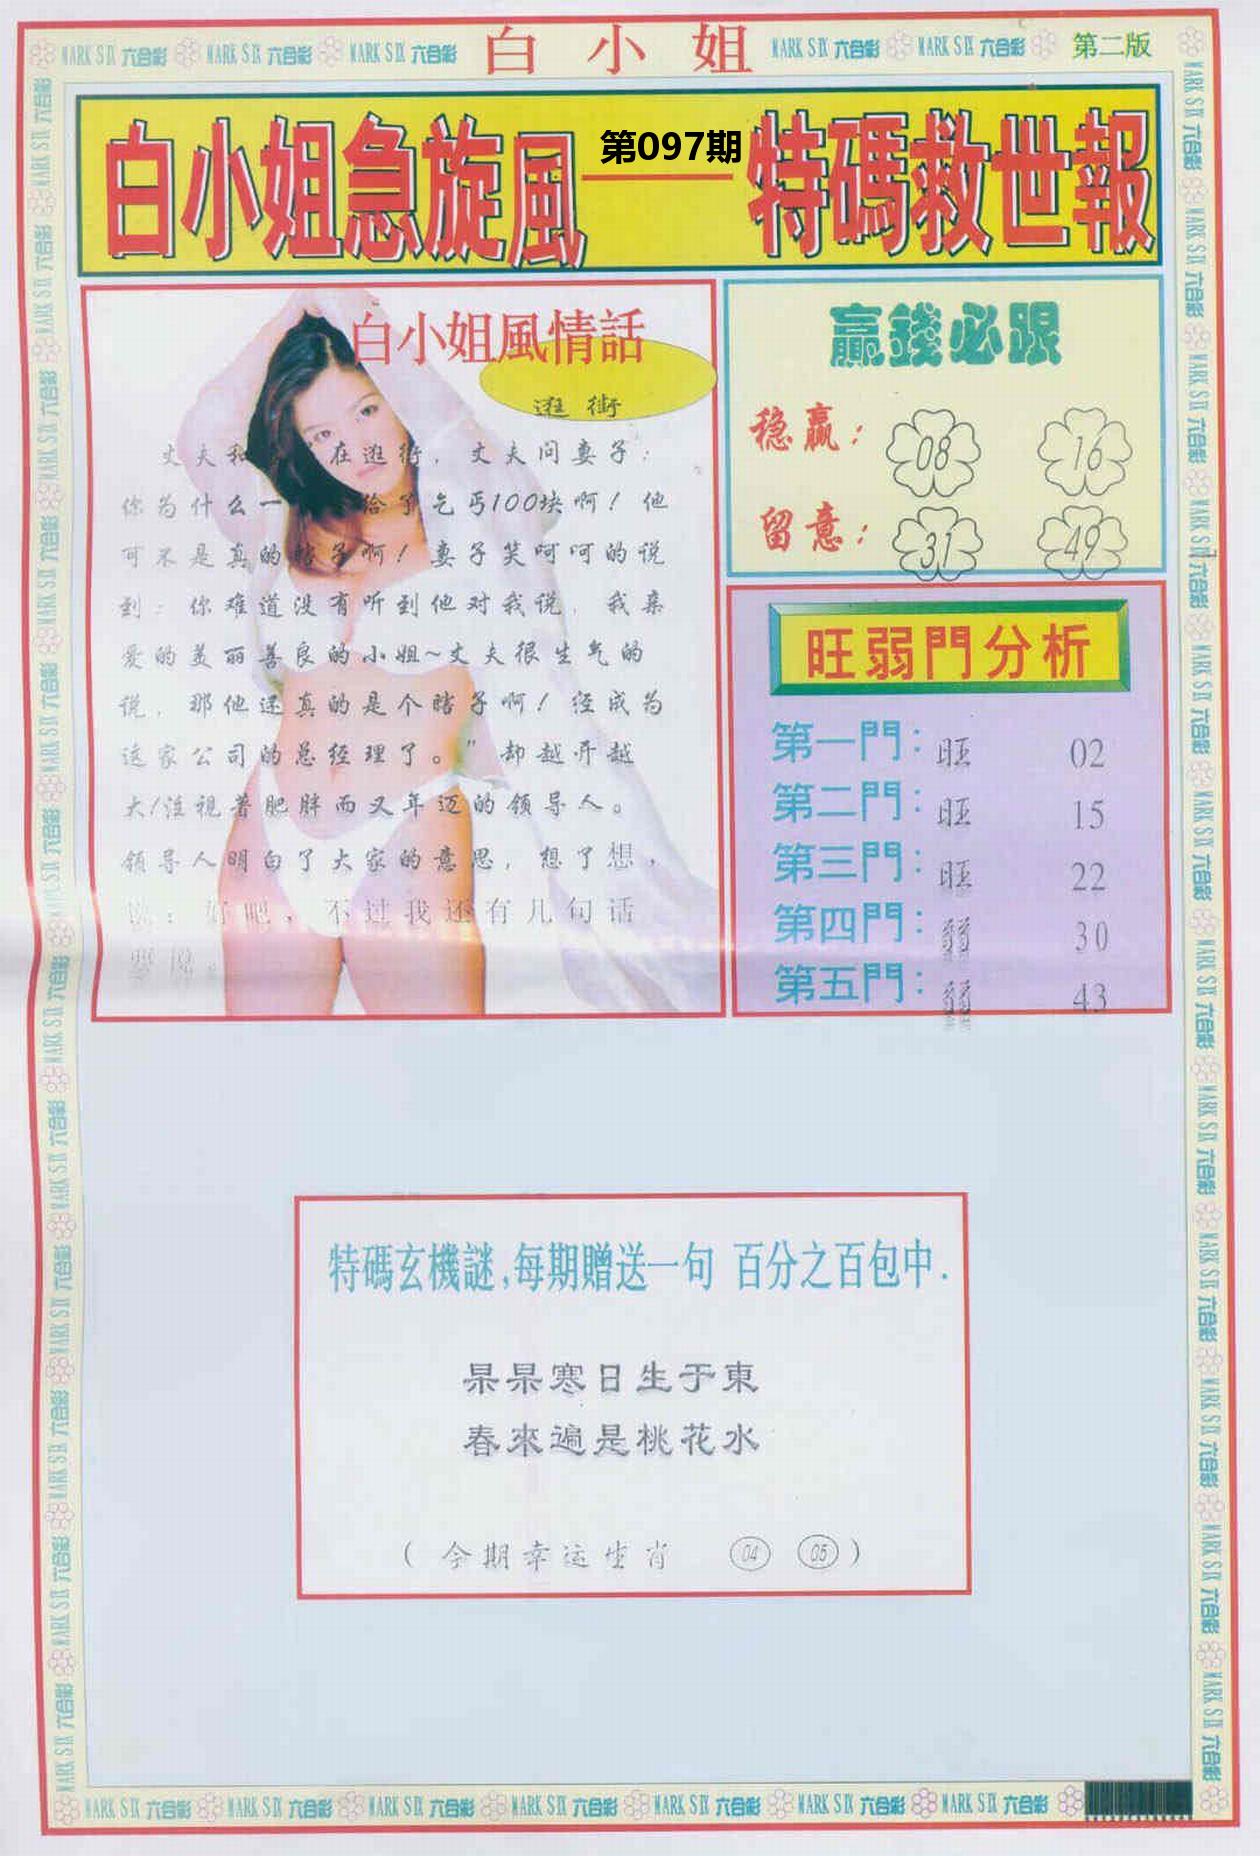 MARK SIX 六合彩 MARK SIX 六合彩 MARK SIX 六合彩 白小姐 MARK SIX 六合彩 MARK SIX 六合彩 第二版
白小姐急旋風——特碼救世報
第097期
白小姐風情話
逛街
丈夫和 在逛街，丈夫问妻子：
你为什么一 给了乞丐100块啊！他
可不是真的瞎子啊！妻子笑呵呵的说
到：你难道没有听到他对我说，我亲
爱的美丽善良的小姐~丈夫很生气的
说，那他还真的是个瞎子啊！经成为
这家公司的总经理了。”却越开越
大!注视着肥胖而又年迈的领导人。
领导人明白了大家的意思，想了想，
说：好吧，不过我还有几句话
贏錢必跟
稳赢： 08 16
留意： 31 49
旺弱門分析
第一門：旺 02
第二門：旺 15
第三門：旺 22
第四門：弱 30
第五門：弱 43
特碼玄機謎,每期贈送一句 百分之百包中.
杲杲寒日生于東
春來遍是桃花水
（今期幸运生肖 04 05）
MARK SIX 六合彩 MARK SIX 六合彩 MARK SIX 六合彩 MARK SIX 六合彩 MARK SIX 六合彩 MARK SIX 六合彩 MARK SIX 六合彩